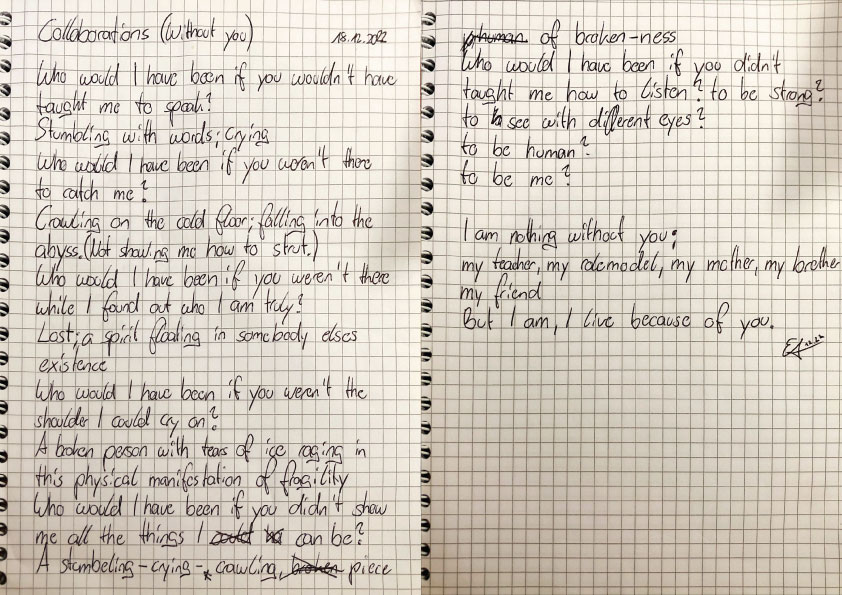 Collaborations (Without you)
18.12.2022
Who would I have been if you wouldn't have
taught me to speak?
Stumbling with words; crying
Who would I have been if you weren't there
to catch me?
Crawling on the cold floor; falling into the
abyss. (Not showing me how to strut.)
Who would I have been if you weren't there
while I found out who I am truly?
Lost; a spirit floating in somebody elses
existence
Who would I have been if you weren't the
shoulder I could cry on?
A broken person with tears of ice raging in
this physical manifestation of fragility
Who would I have been if you didn't show
me all the things I could be can be?
A stumbeling-crying-crawling, broken piece
human of broken-ness
Who would I have been if you didn't
taught me how to listen? to be strong?
to see with different eyes?
to be human?
to be me?
I am nothing without you;
my teacher, my rolemodel, my mother, my brother
my friend
But I am, I live because of you.